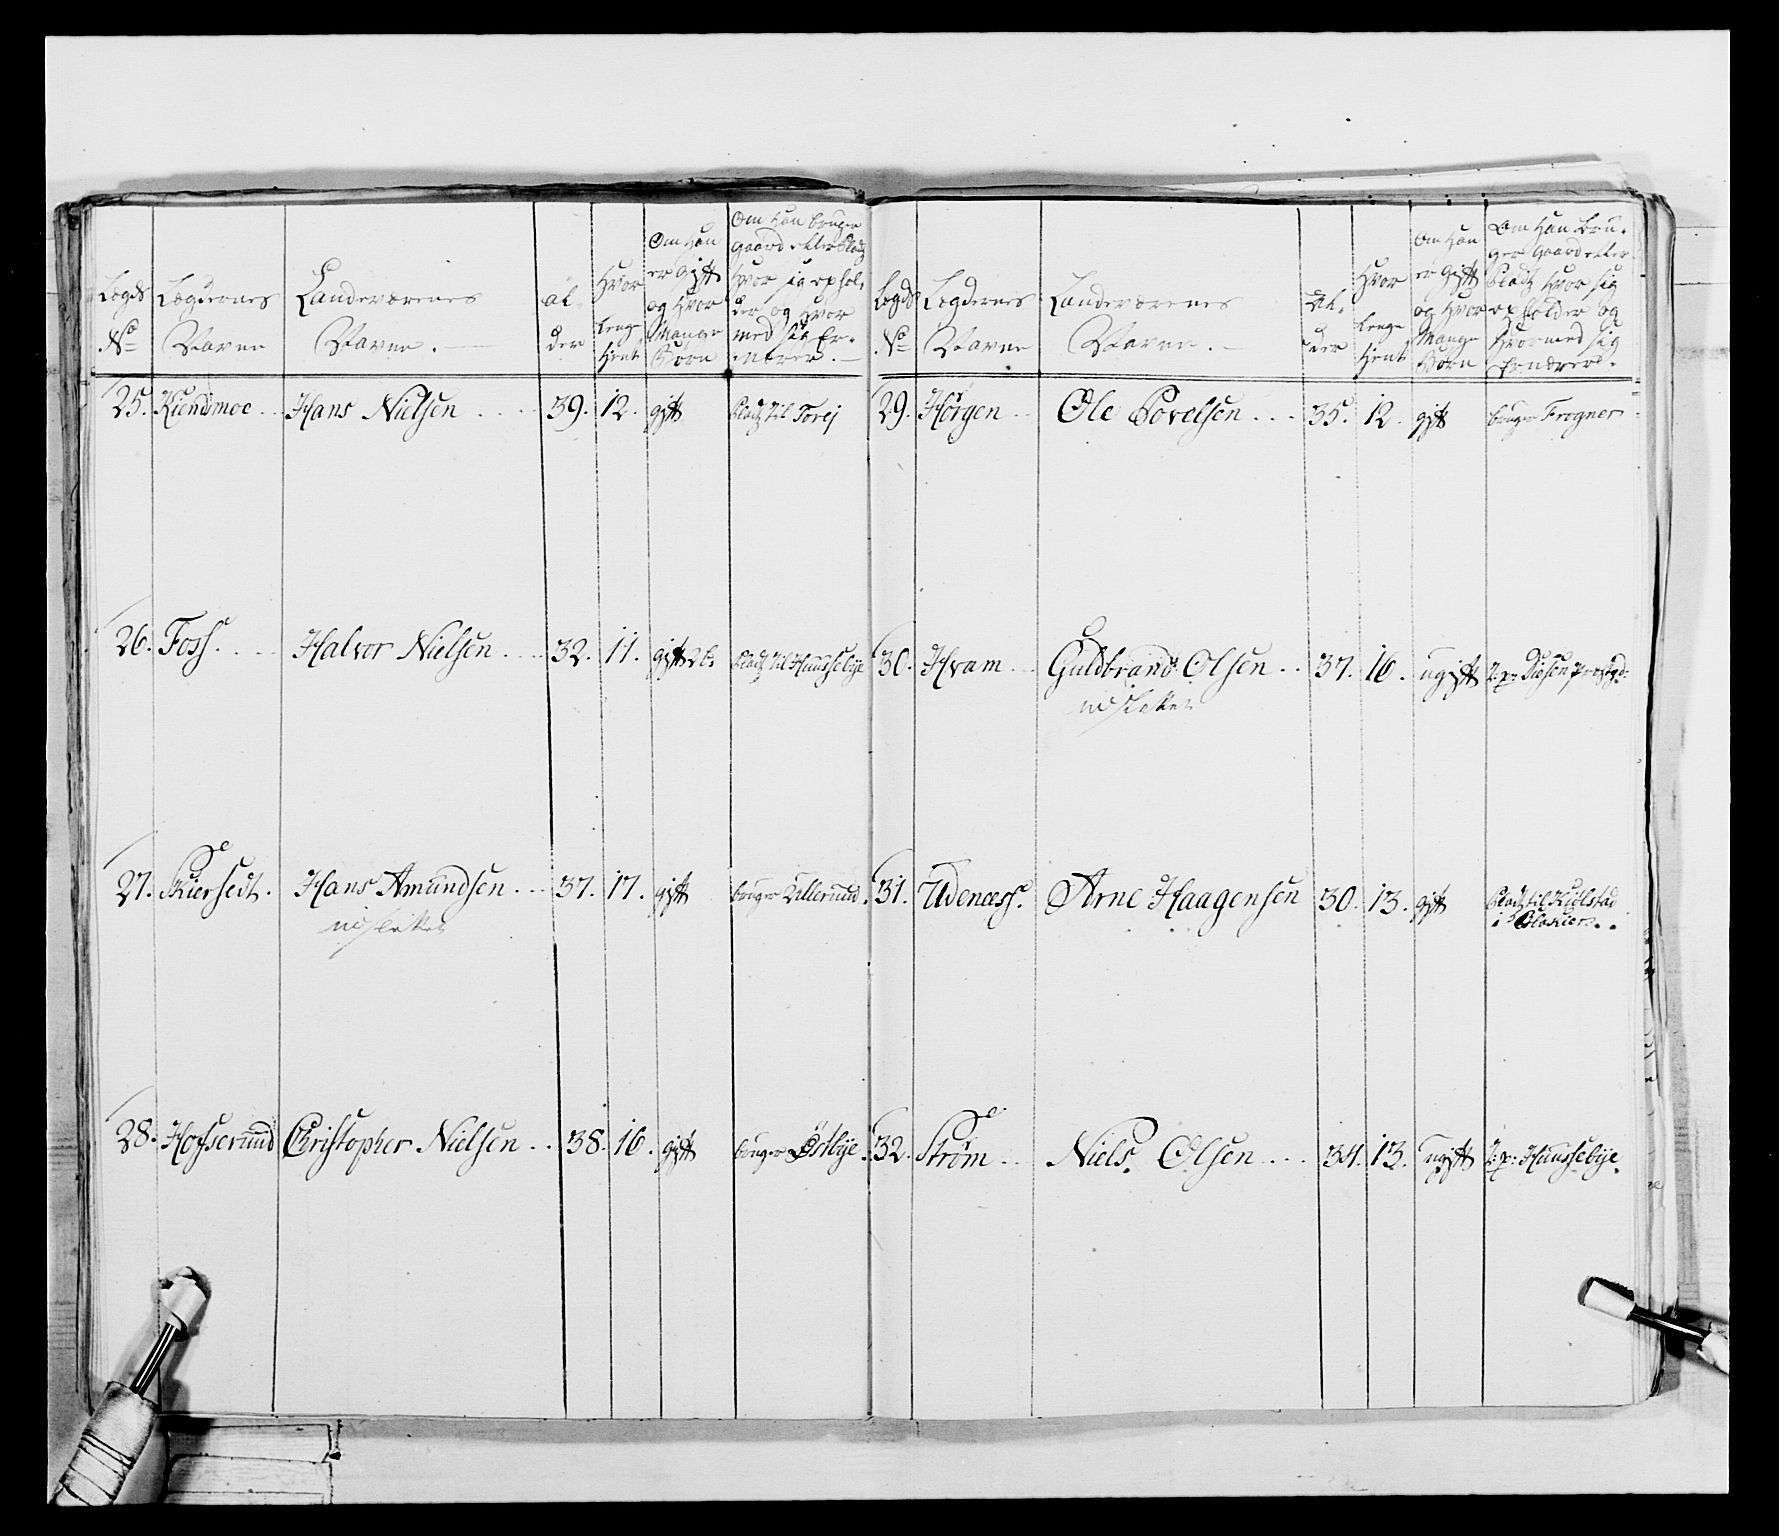 Legds No
Legdernes Navne
Landeværenes Navne.
Alder
Hvor lenge tient
Om Han er gift og Hvor Mange Børn
Om Han bruger gaard eller Pladz Hvor sig ophol-der og Hvor med sig Er-nærer.
25. Kiendmoe Hans Nielsen 39. 12. gift Pladz til Torej
26. Foss. Halvor Nielsen 32. 11. gift 2 b. Pladz til Hunssebije
27. Skiersedt. Hans Amundsen 37. 17. gift bruger Ullerund.
udslettet
28. Hofserund Christopher Nielsen 38. 16. gift bruger Østbije.
Legds No
Legdernes Navne
Landeværenes Navne.
Al-der
Hvor lenge tient
Om Han er gift og Hvor Mange Børn
Om Han Bru-ger gaard eller Pladz Hvor sig opholder og Hvormed sig Ernærer.
29. Hørgen Ole Povelsen 35. 12. gift bruger Frogner
30. Hvam Guldbrand Olsen 37. 16. ugift
udslettet
31. Udenæss. Arne Haagensen 30. 13. gift Pladz til Kiølstad
i Blakier.
32. Strøm Niels Olsen 34. 13. ugift Hunssebije.